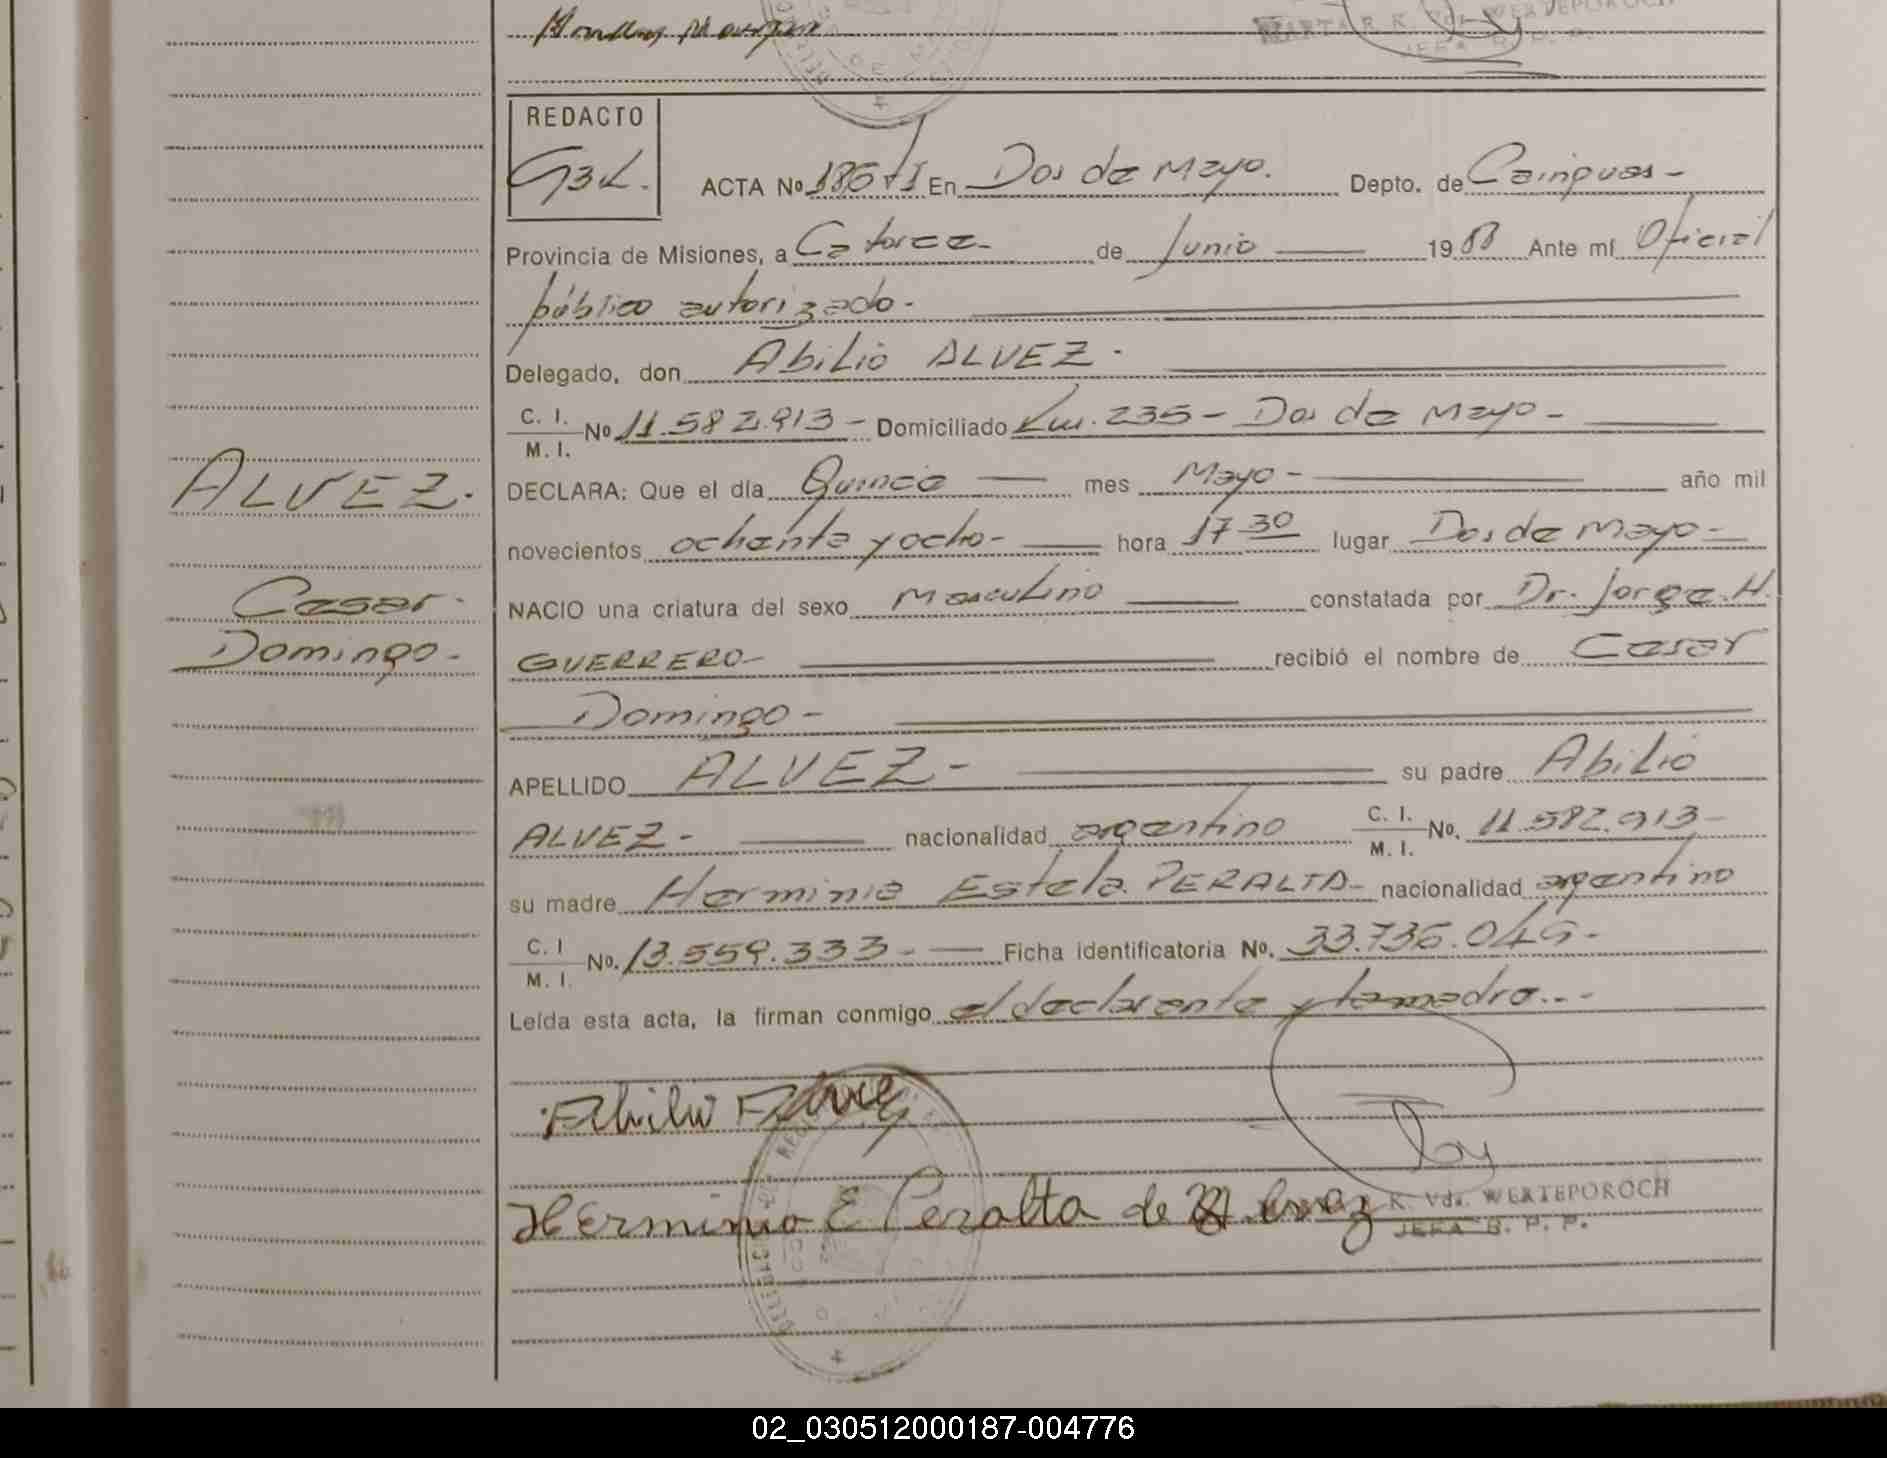 REDACTO
ACTA Nº 186 t I En Dos de Mayo. Depto. de Cainguas -
Provincia de Misiones, a Catorce - de Junio 1988 Ante mí Oficial
público autorizado -
Delegado, don Abilio ALVEZ -
C. I. M. I. Nº 11.582.913 - Domiciliado Km. 235 - Dos de Mayo -
ALVEZ.
DECLARA: Que el día Quince mes Mayo - año mil
novecientos ochenta y ocho - hora 17 30 lugar Dos de Mayo -
Cesar.
NACIO una criatura del sexo Masculino constatada por Dr. Jorge. H.
Domingo -
GUERRERO - recibió el nombre de Cesar
Domingo -
APELLIDO ALVEZ - su padre Abilio
ALVEZ - nacionalidad argentino C. I. M. I. No. 11.582.913 -
su madre Herminia Estela PERALTA - nacionalidad argentino
C. I M. I. No. 13.559.333 - Ficha identificatoria Nº. 33.736.045 -
Leída esta acta, la firman conmigo el declarante y la madre...-
Abilio Alvez
Herminia E Peralta de Alvez
K. Vda. WERTEPOROCH
JEFA R. P. P.
02_030512000187-004776